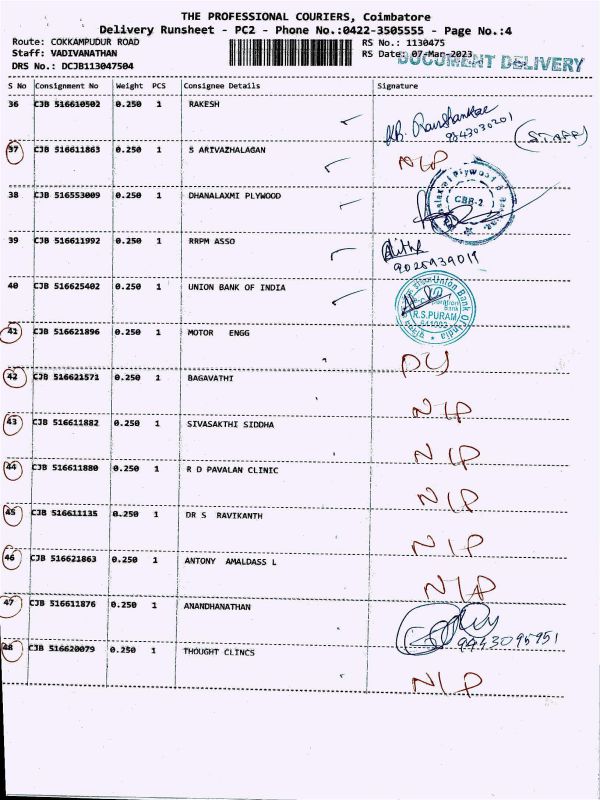 THE PROFESSIONAL COURIERS, Coimbatore
Delivery Runsheet - PC2 - Phone No.:0422-3505555 - Page No.:4
Route: COKKAMPUDUR ROAD RS No.: 1130475
Staff: VADIVANATHAN RS Date: 07-Mar-2023
DOCUMENT DELIVERY
DRS No.: DCJB113047504
S No Consignment No Weight PCS Consignee Details Signature
36 CJB 516610502 0.250 1 RAKESH
9843030201 (STAFF)
37 CJB 516611863 0.250 1 S ARIVAZHALAGAN N/P
38 CJB 516553009 0.250 1 DHANALAXMI PLYWOOD
CBE-2
39 CJB 516611992 0.250 1 RRPM ASSO
9025939019
40 CJB 516625402 0.250 1 UNION BANK OF INDIA
Union Bank Of India
R.S.PURAM
41 CJB 516621896 0.250 1 MOTOR ENGG
42 CJB 516621571 0.250 1 BAGAVATHI N/P
43 CJB 516611882 0.250 1 SIVASAKTHI SIDDHA N/P
44 CJB 516611880 0.250 1 R D PAVALAN CLINIC N/P
45 CJB 516611135 0.250 1 DR S RAVIKANTH N/P
46 CJB 516621863 0.250 1 ANTONY AMALDASS L N/P
47 CJB 516611876 0.250 1 ANANDHANATHAN
9943095951
48 CJB 516620079 0.250 1 THOUGHT CLINCS N/P